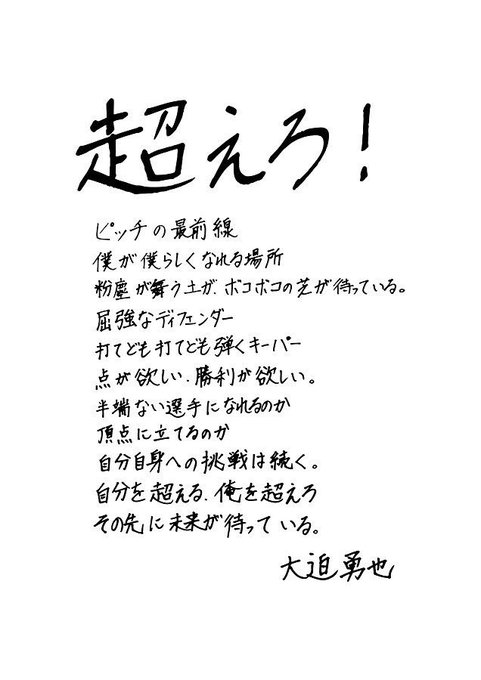 超えろ!
ピッチの最前線
僕が僕らしくなれる場所
粉塵が舞う土が、ボコボコの芝が待っている。
屈強なディフェンダー
打てども打てども弾くキーパー
点が欲しい、勝利が欲しい。
半端ない選手になれるのか
頂点に立てるのか
自分自身への挑戦は続く。
自分を超える、俺を超えろ
その先に未来が待っている。
大迫勇也